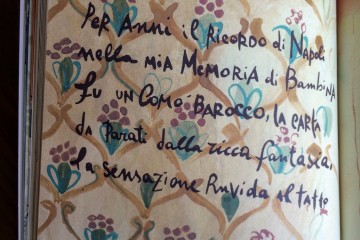 Per Anni il Ricordo di Napoli
nella mia Memoria di Bambina
fu un Comò Barocco, la carta
da Parati dalla ricca fantasia,
la sensazione Ruvida al tatto